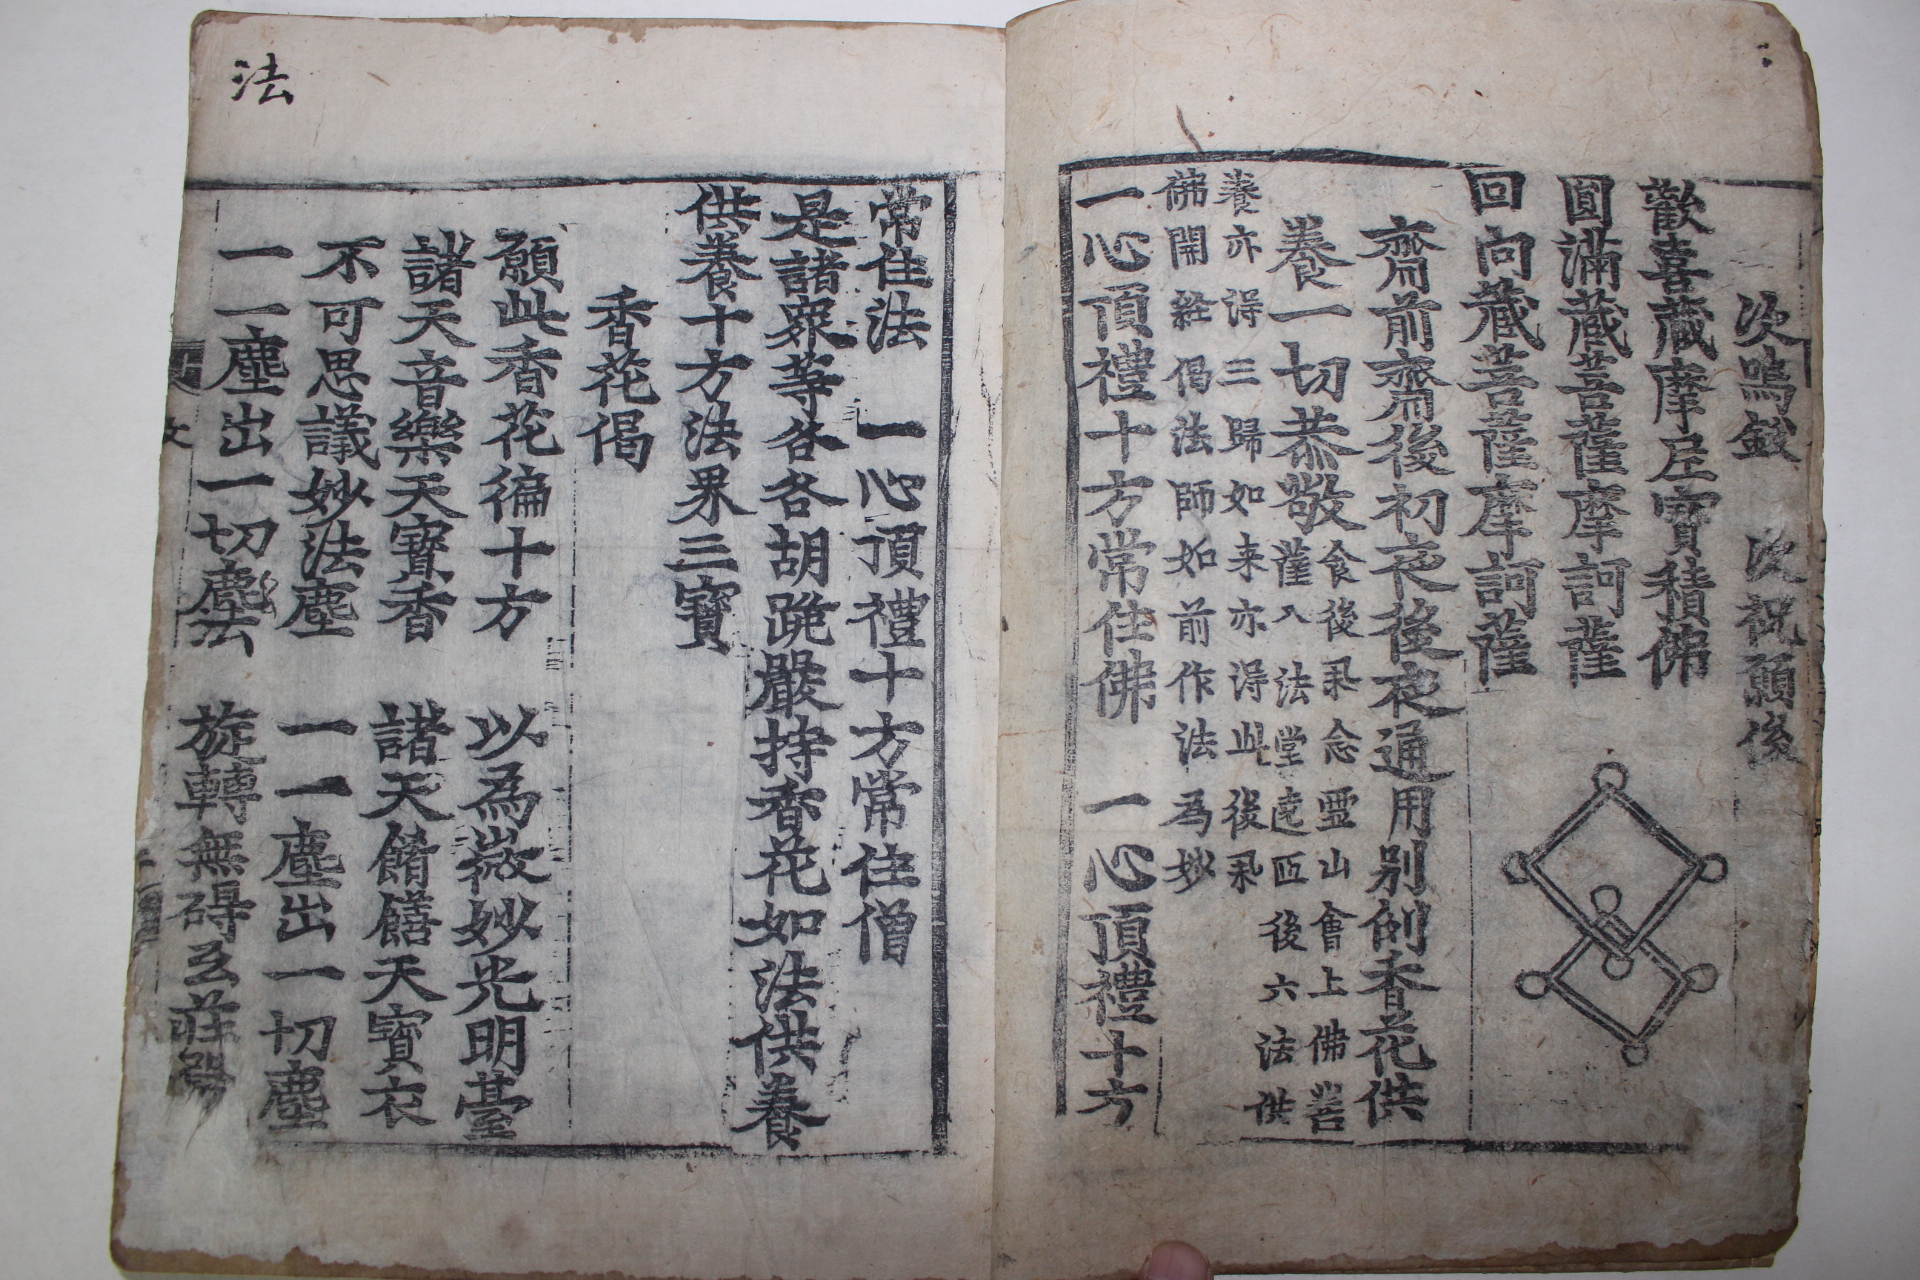 次鳴鈸　次祝願後
歡喜藏摩尼寶積佛
圓滿藏菩薩摩訶薩
回向藏菩薩摩訶薩
齋前齋後初夜後夜通用別例香花供
養一切恭敬
食後丞念靈山會上佛菩
薩入　法堂遶匝後六法供
養亦得三歸如来亦得此後丞
佛開経偈法師如前作法為妙
一心頂禮十方常住佛　一心頂禮十方
常住法　一心頂禮十方常住僧
是諸衆等各各胡跪嚴持香花如法供養
供養十方法界三寶
香花偈
願此香花徧十方　以為微妙光明臺
諸天音樂天寶香　諸天餚饍天寶衣
不可思議妙法塵　一一塵出一切塵
一一塵出一切塵法　旋轉無碍玄莊嚴
法